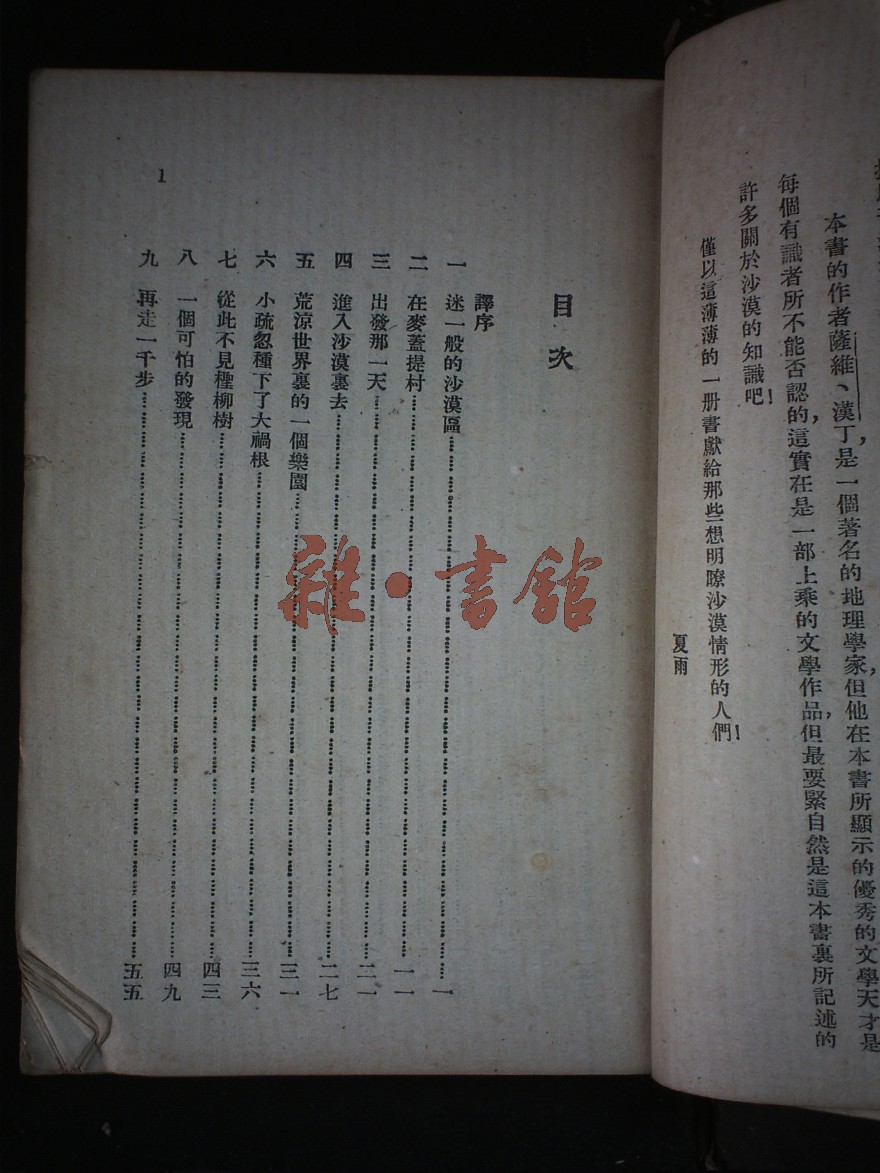 本書的作者薩維、漢丁，是一個著名的地理學家，但他在本書所顯示的優秀的文學天才是
每個有識者所不能否認的，這實在是一部上乘的文學作品，但最要緊自然是這本書裏所記述的
許多關於沙漠的知識吧！
僅以這薄薄的一册書獻給那些想明瞭沙漠情形的人們！
夏雨
目次
譯序
一 迷一般的沙漠區 一
二 在麥蓋提村 一一
三 出發那一天 二一
四 進入沙漠裏去 二七
五 荒涼世界裏的一個樂園 三一
六 小疏忽種下了大禍根 三六
七 從此不見檉柳樹 四三
八 一個可怕的發現 四九
九 再走一千步 五五
1
雜·書館